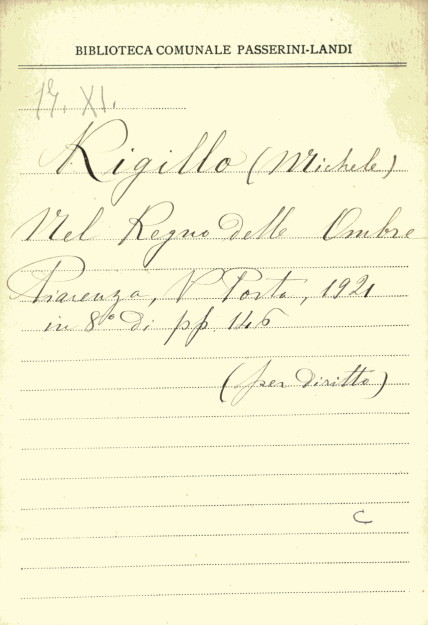 BIBLIOTECA COMUNALE PASSERINI-LANDI
XI.
Rigillo (Michele)
Nel Regno delle Ombre
Piacenza, V Porta, 1921
in 8° di pp. 146
(per diritto)
C